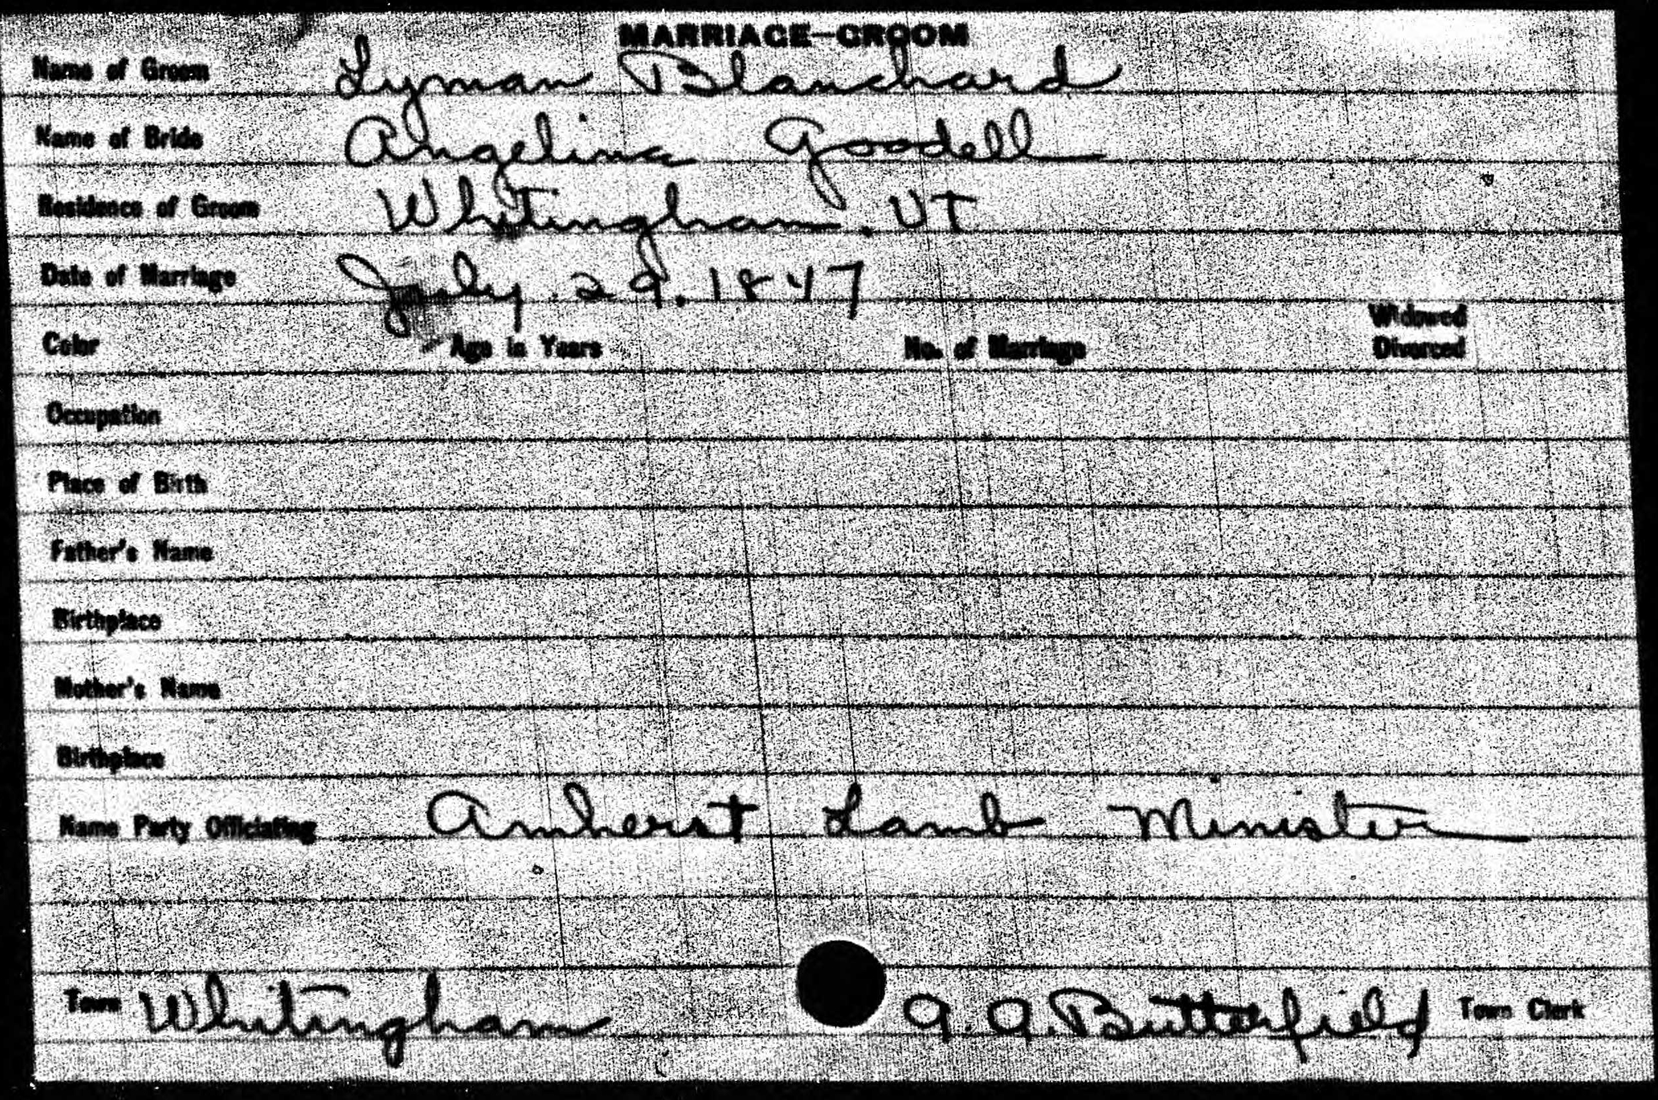 MARRIAGE—GROOM
Name of Groom Lyman Blanchard
Name of Bride Angelina Goodell
Residence of Groom Whitingham, VT
Date of Marriage July 29, 1847
Widowed
Color Age in Years No. of Marriage Divorced
Occupation
Place of Birth
Father's Name
Birthplace
Mother's Name
Birthplace
Name Party Officiating Amherst Lamb Minister
Town Whitingham A. A. Butterfield Town Clerk